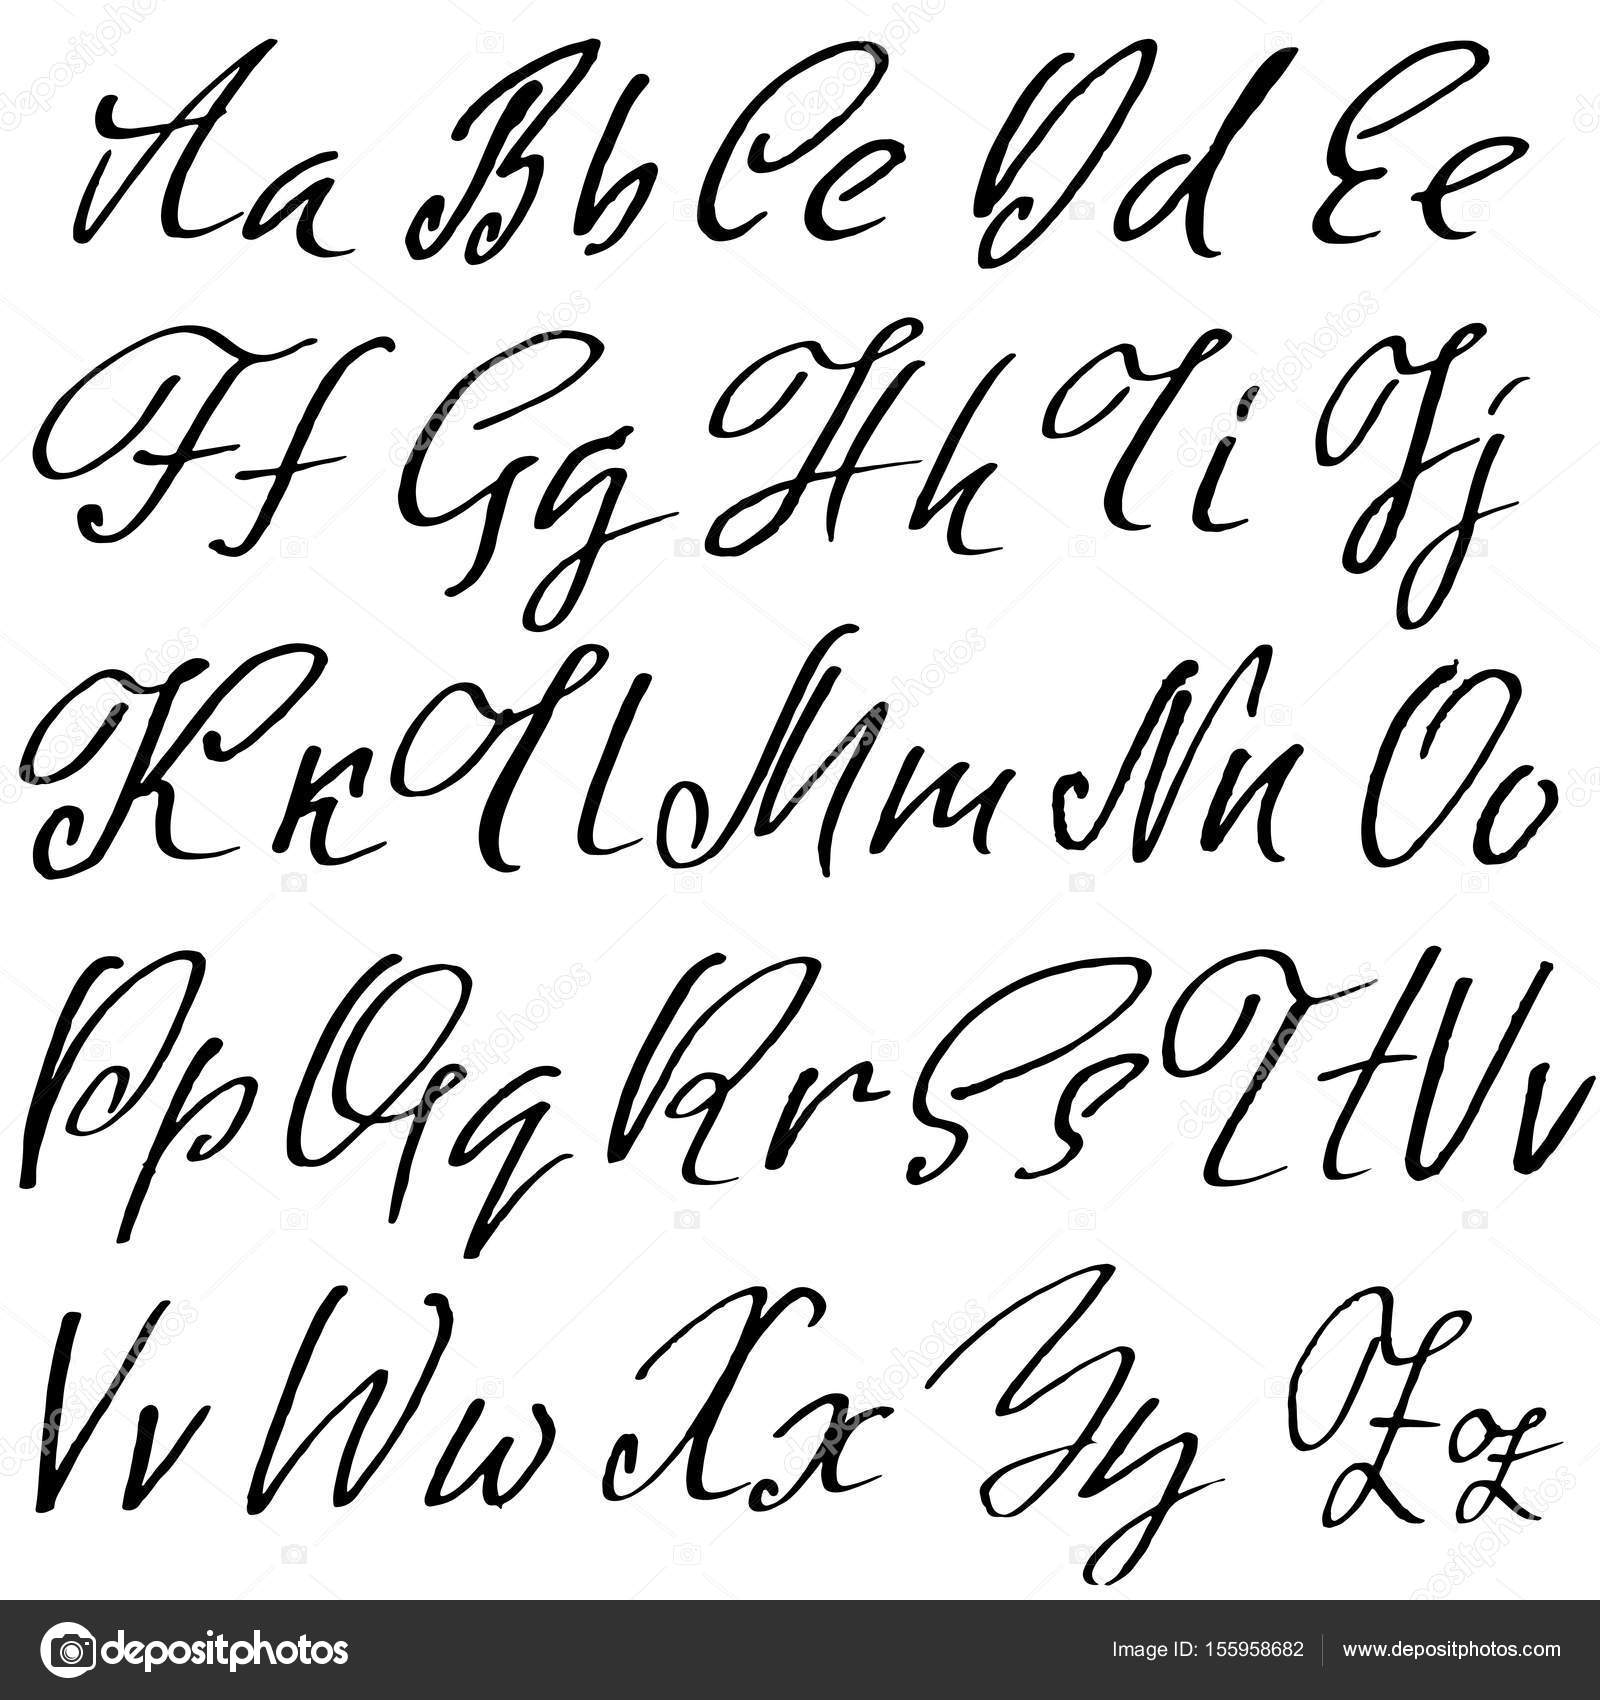 Aa Bb Cc Dd Ee
Ff Gg Hh Ii Jj
Kk Ll Mm Nn Oo
Pp Qq Rr Ss Tt Uu
Vv Ww Xx Yy Zz
depositphotos Image ID: 155958682 www.depositphotos.com